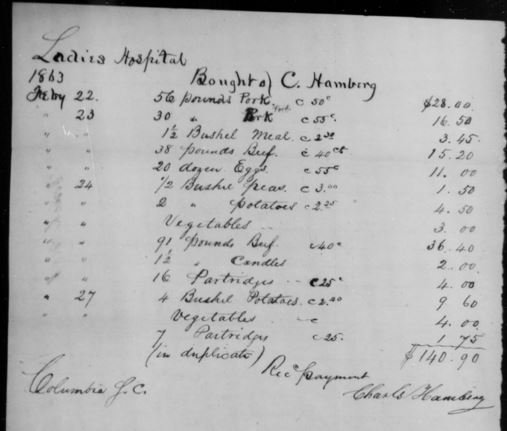 Ladies Hospital
1863 Bought of C. Hamberg
Feby 22. 56 pounds Pork c 50c $28.00
" 23 30 " Pork c 55c 16.50
" " 1½ Bushel Meal c 2.30 3.45
" " 38 pounds Beef. c 40cts 15.20
" " 20 dozen Eggs. c 55c 11.00
" 24 1/2 Bushel peas. c 3.00 1.50
" " 2 " potatoes c 2.25 4.50
" " Vegetables 3.00
" " 91 pounds Beef c 40c 36.40
" " 1½ " Candles 2.00
" " 16 Partridges c 25c 4.00
" 27 4 Bushel Potatoes. c 2.40 9.60
" " Vegetables c 4.00
7 Partridges c 25. 1.75
(in duplicate) $140.90
Recd payment
Columbia S.C. Charls Hamberg